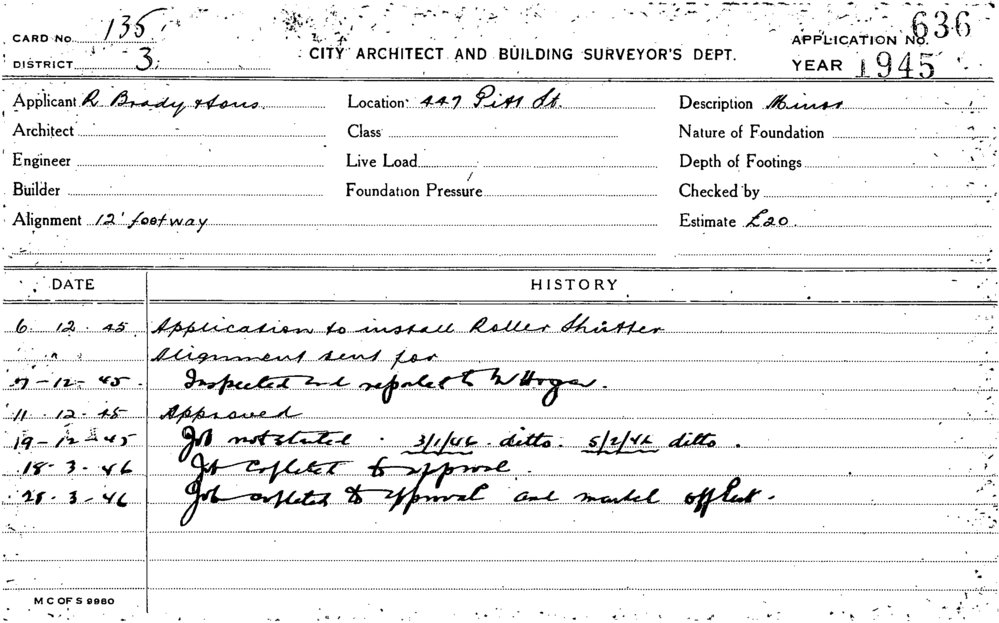 CARD No. 135
DISTRICT 3
CITY ARCHITECT AND BUILDING SURVEYOR'S DEPT.
APPLICATION No. 636
YEAR 1945
Applicant R Brady & Sons Location 447 Pitt St. Description Minor
Architect Class Nature of Foundation
Engineer Live Load Depth of Footings
Builder Foundation Pressure Checked by
Alignment 12' footway Estimate £20
DATE HISTORY
6. 12. 45 Application to install Roller Shutter
" " Alignment sent for
7-12-45. Inspected and reported to
11. 12. 45 Approved
19-12-45 Job not started. 3/1/46 ditto. 5/2/46 ditto.
18-3-46 Job copleted to approval.
28-3-46 Job copleted to approval and marked off
M C OF S 9980